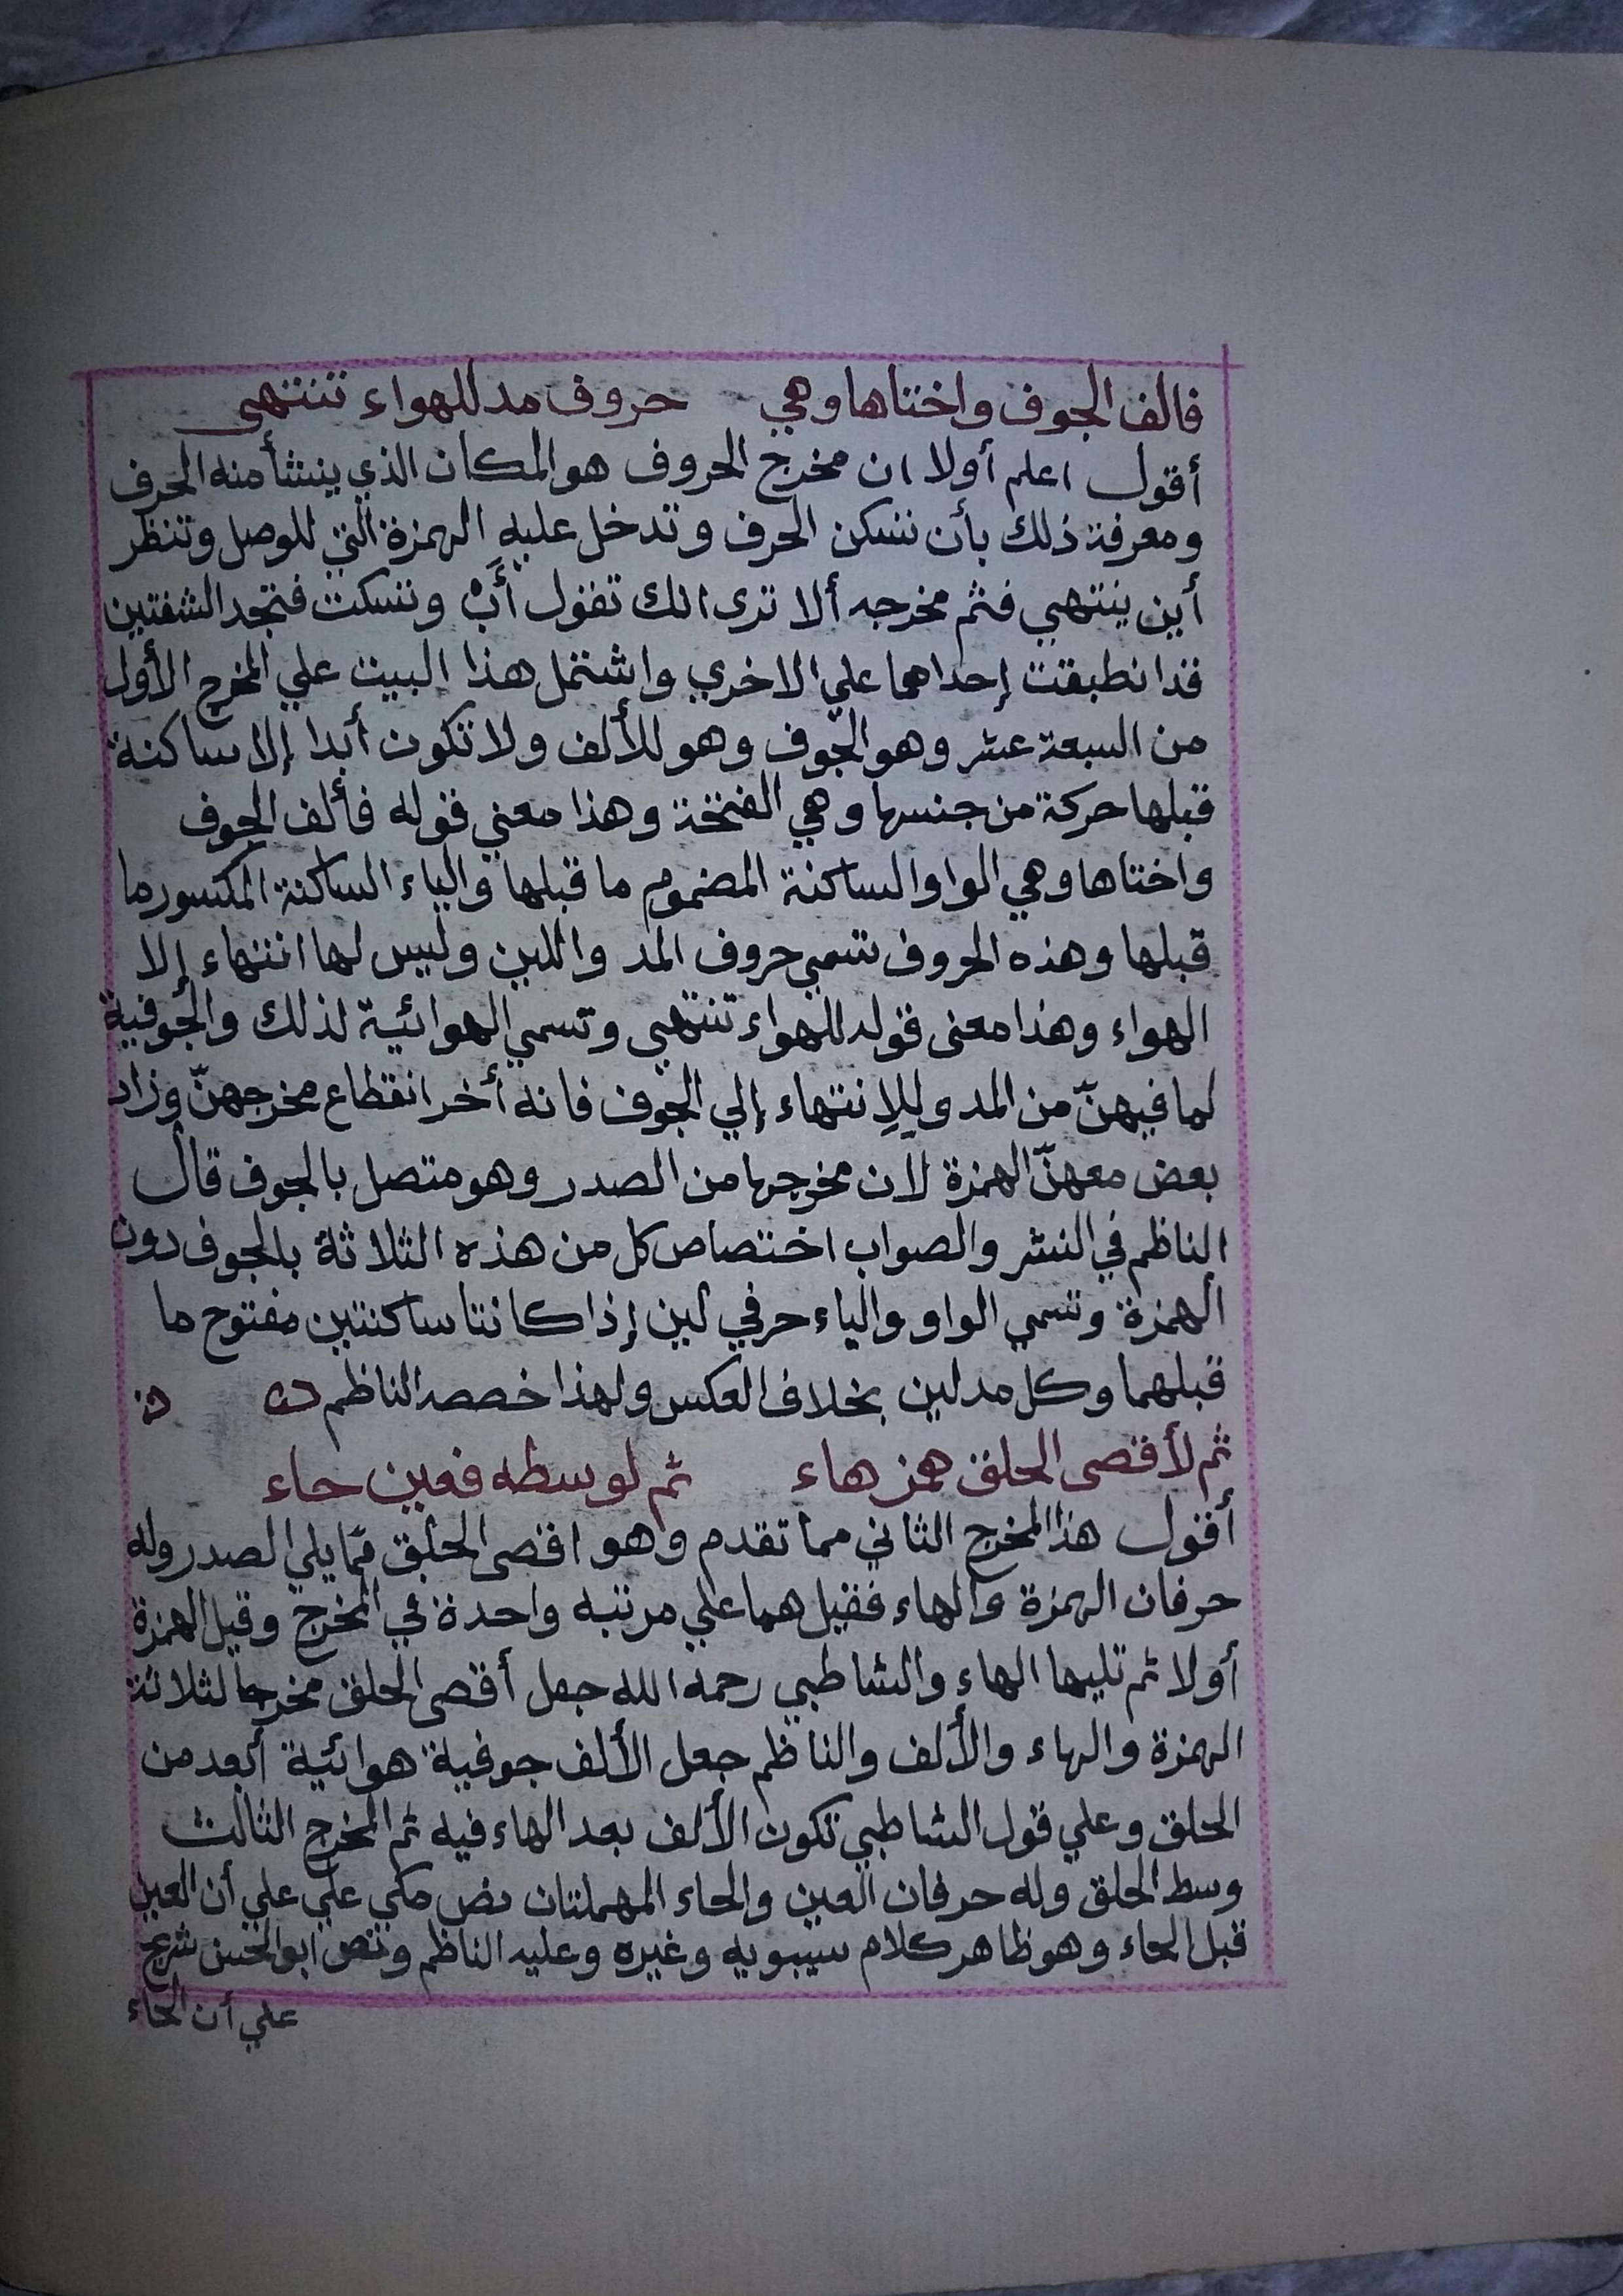 فالف الجوف واختاها وهي حروف مد للهواء تنتهى
أقول اعلم أولا ان مخرج الحروف هو المكان الذي ينشأ منه الحرف
ومعرفة ذلك بأن نسكن الحرف وتدخل عليه الهمزة التي للوصل وتنظر
أين ينتهي فثم مخرجه ألا ترى انك تقول أَبْ وتسكت فتجد الشفتين
قد انطبقت إحداهما علي الاخري واشتمل هذا البيت علي المخرج الأول
من السبعة عشر وهو الجوف وهو للألف ولا تكون أبدا إلا ساكنة
قبلها حركة من جنسها وهي الفتحة وهذا معني قوله فألف الجوف
واختاها وهي الواو الساكنة المضموم ما قبلها والياء الساكنة المكسور ما
قبلها وهذه الحروف تسمي حروف المد واللين وليس لها انتهاء إلا
الهواء وهذا معنى قوله للهواء تنتهي وتسمي الهوائية لذلك والجوفية
لما فيهنّ من المد وللإنتهاء إلي الجوف فانه أخر انقطاع مخرجهنّ وزاد
بعض معهنّ الهمزة لان مخرجها من الصدر وهو متصل بالجوف قال
الناظم في النشر والصواب اختصاص كل من هذه الثلاثة بالجوف دون
الهمزة وتسمي الواو والياء حرفي لين إذا كانتا ساكنتين مفتوح ما
قبلهما وكل مد لين بخلاف العكس ولهذا خصصه الناظم
ثم لأقصى الحلق همز هاء ثم لوسطه فعين حاء
أقول هذا المخرج الثاني مما تقدم وهو اقصى الحلق مّما يلي الصدر وله
حرفان الهمزة والهاء فقيل هما علي مرتبه واحدة في المخرج وقيل الهمزة
أولا ثم تليها الهاء والشاطبي رحمه الله جعل أقصى الحلق مخرجا لثلاثة
الهمزة والهاء والألف والناظم جعل الألف جوفية هوائية أبعد من
الحلق وعلي قول الشاطبي تكون الألف بعد الهاء فيه ثم المخرج الثالث
وسط الحلق وله حرفان العين والحاء المهملتان نص مكي علي علي أن العين
قبل الحاء وهو ظاهر كلام سيبويه وغيره وعليه الناظم ونص ابو الحسن شريح
علي أن الحاء